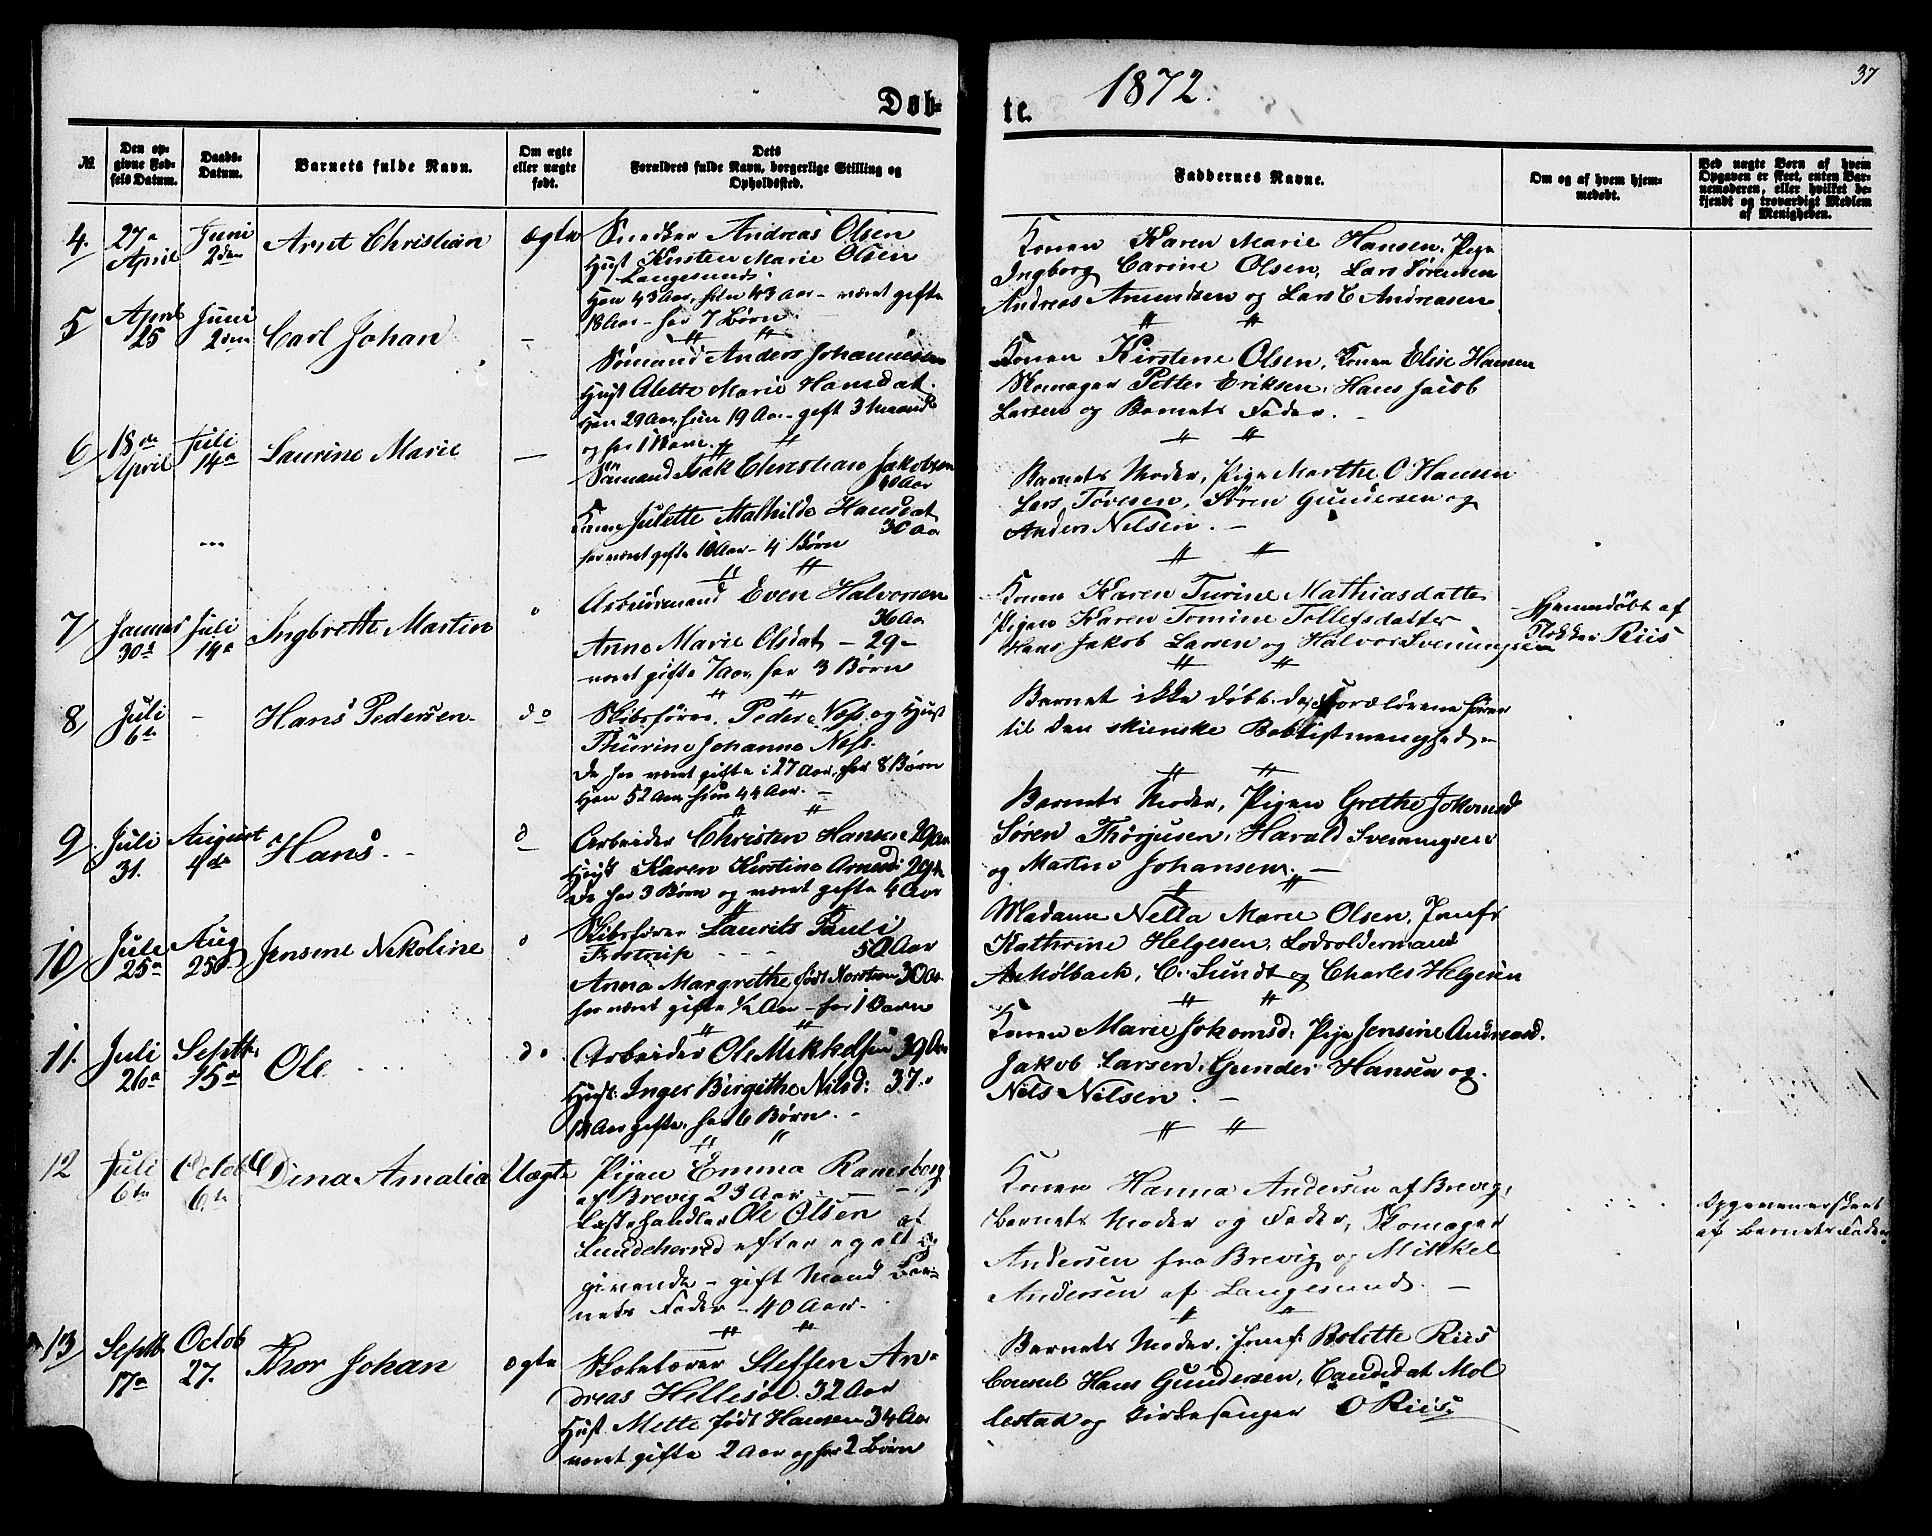 Døb-
te.
1872.
37
№
Den op-
givne Fød-
sels Datum.
Daabs-
Datum.
Barnets fulde Navn.
Om ægte
eller uægte
født.
Dets
Forældres fulde Navn, borgerlige Stilling og
Opholdssted.
Faddernes Navne.
Om og af hvem hjem-
medøbt.
Ved uægte Børn af hvem
Opgaven er skeet, enten Bar-
nemoderen, eller hvilket be-
kjendt og troværdigt Medlem
af Menigheden.
4.
27de
April
Juni
2den
Arnt Christian
ægte
Snedker Andreas Olsen
Hust Kirsten Marie Olsen
Langesund
Han 43 Aar, hun 43 Aar - været gifte
18 Aar - har 7 Børn
Konen Karen Marie Hansen, Pige
Ingborg Carine Olsen, Lars Sørensen
Andreas Amundsen og Lars C Andreasen
5
April
25
Juni
2den
Carl Johan
-
Sømand Anders Johannesen
Hust Alette Marie Hansdat.
Han 29 Aar, hun 19 Aar - gift 3 Maaned
og har 1 Barn.
Konen Kirstene Olsen, Konen Elise Hansen
Skomager Petter Eriksen, Hans Jacob
Larsen og Barnets Fader. -
6
18de
April
Juli
14de
Laurine Marie
-
Sömand Isak Christian Jakobsen
40 Aar
Kone Julette Mathilde Hansdat
30 Aar
har været gifte 10 Aar - 4 Börn
Barnets Moder, Pige Marthe O Hansen
Lars Tøresen, Sören Gundersen og
Anders Nilsen. -
7
Januar
30te
Juli
14de
Ingbreth Martin
do
Arbeidsmand Even Halvorsen
36 Aar
Anne Marie Olsdat - 29 -
været gifte 7 Aar, har 3 Børn
Konen Karen Turine Mathiasdatte
Pigen Karen Tomine Tollefsdatter
Hans Jakob Larsen og Halvor Svenningsen
Hjemmedöbt af
Klokker Riis
8
Juli
6te
-
Hans Pedersen
do
Skibsfører Peder Næss og Hust
Thurine Johanne Næss.
De har været gifte i 27 Aar, har 8 Børn
Han 52 Aar, hun 44 Aar. -
Barnet ikke døbt da Forældrene hører
til den skienske Babtistmenighed. -
9
Juli
31.
August
4de
Hans
do
Arbeider Christen Hansen 29 Aar
Hust Karen Kirstine Arnesd: 29 Aar
De har 3 Børn og været gifte 4 Aar
Barnets Moder, Pigen Grethe Johansd
Søren Thorjusen, Harald Svenningsen
og Martin Johansen. -
10
Juli
25de
Aug
25de
Jensine Nikoline
do
Skibsfører Laurits Pauli
50 Aar
Anna Margrethe født 30 Aar
har været gifte 1/2 Aar - har 1 Barn
Madame Nella Marie Olsen, Jomfr
Kathrine Helgesen, Lodsoldermand
A Mölback, C. Sundt og Charles Helgesen
11.
Juli
26de
Septb:
15de
Ole
do
Arbeider Ole Mikkelsen 39 Aar
Hust: Inger Birgithe Nilsd: 37 -
12 Aar gifte, har 6 Børn. -
Konen Marie Johansd: Pige Jensine Andreasd.
Jakob Larsen, Gunder Hansen og
Nels Nelsen. -
12
Juli
6te
Octob
6te
Dina Amalia
Uægte
Pigen Emma Ramsborg
af Brevig 23 Aar
Læstehandler Ole Olsen af
givende - gift Mand Bar-
nets Fader - 40 Aar -
Konen Hanna Andersen af Brevig,
Barnets Moder og Fader, Skomager
Andersen fra Brevig og Mikkel
Andersen af Langesund. -
Opgivennen skeet
af Barnets Fader
13
Septb
17de
Octob
27.
Thor Johan
ægte
Steffen An-
dreas Hellesöe 32 Aar
Hust Mette født Hansen 34 Aar
været gifte 2 Aar og har 2 Børn
Barnets Moder, Jomf: Bolette Riis
Consul Hans Gundersen, Candidat Mol
lestad og Kirkesanger O Riis.